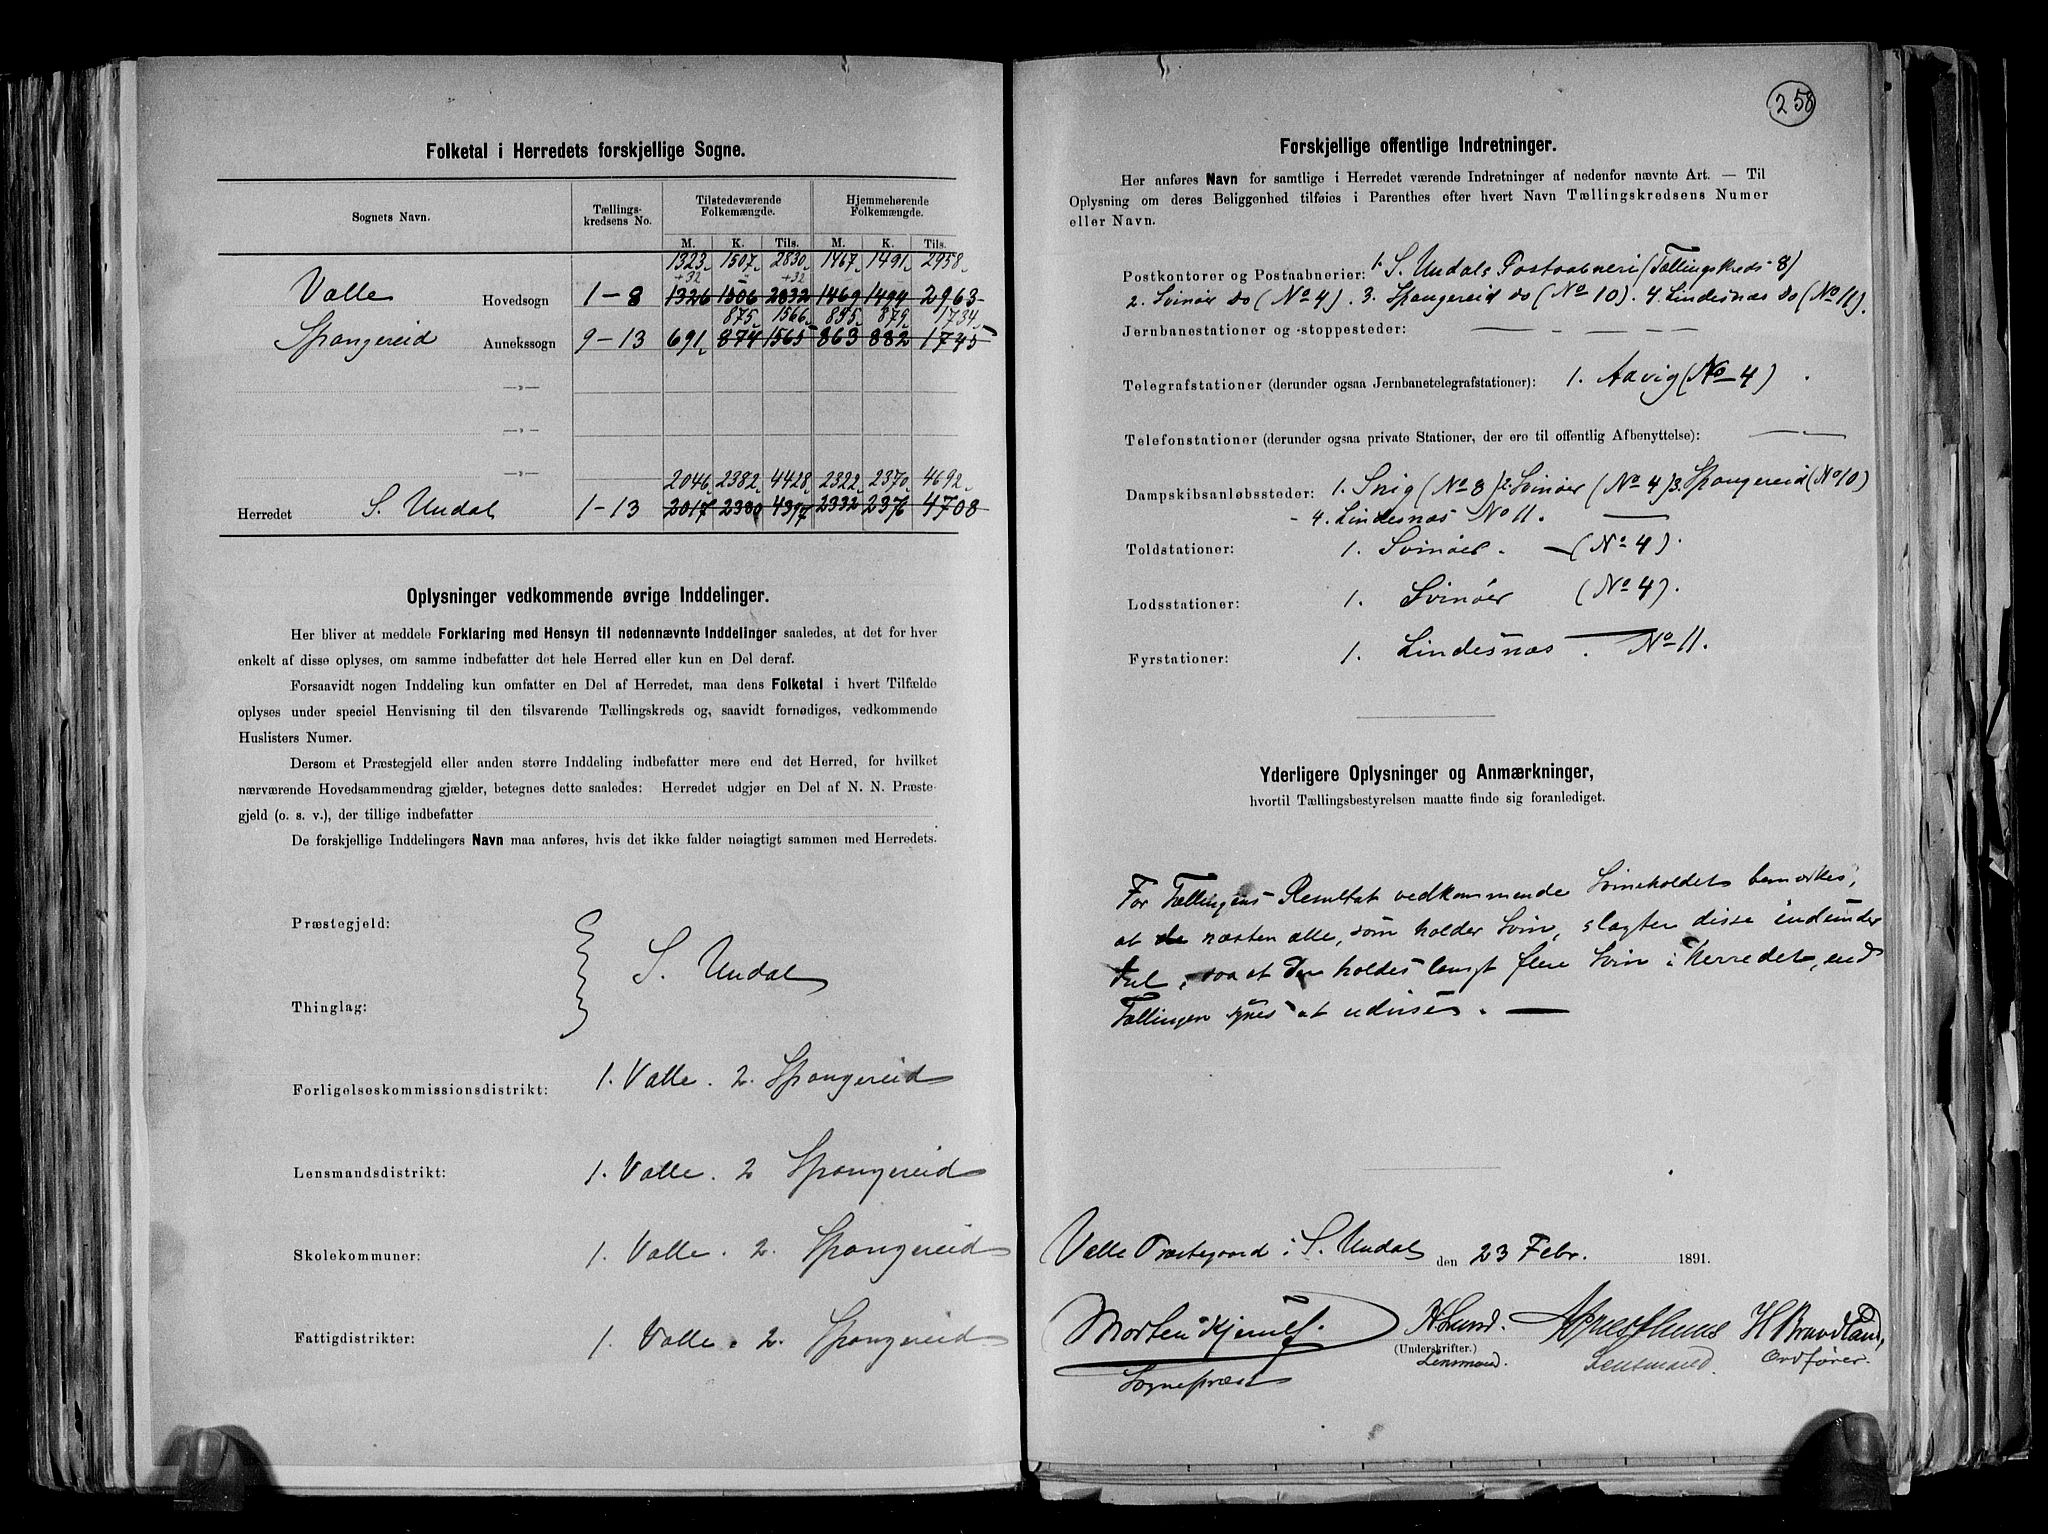 Folketal i Herredets forskjellige Sogne.
Sognets Navn.
Tællings-
kredsens No.
Tilstedeværende
Folkemængde.
Hjemmehørende
Folkemængde.
M. K. Tils. M. K. Tils.
1323 1507 2830 1467 1491 2958
+32 +32
Valle Hovedsogn 1-8 1326 1506 2832 1469 1494 2963
875 1566 855 879 1734
Spangereid Annekssogn 9-13 691 874 1565 863 882 1745
—„—
—„—
—„—
2046 2382 4428 2322 2370 4692
Herredet S. Undal 1-13 2017 2380 4397 2332 2376 4708
Oplysninger vedkommende øvrige Inddelinger.
Her bliver at meddele Forklaring med Hensyn til nedennævnte Inddelinger saaledes, at det for hver
enkelt af disse oplyses, om samme indbefatter det hele Herred eller kun en Del deraf.
Forsaavidt nogen Inddeling kun omfatter en Del af Herredet, maa dens Folketal i hvert Tilfælde
oplyses under speciel Henvisning til den tilsvarende Tællingskreds og, saavidt fornødiges, vedkommende
Huslisters Numer.
Dersom et Præstegjeld eller anden større Inddeling indbefatter mere end det Herred, for hvilket
nærværende Hovedsammendrag gjælder, betegnes dette saaledes: Herredet udgjør en Del af N. N. Præste-
gjeld (o. s. v.), der tillige indbefatter
De forskjellige Inddelingers Navn maa anføres, hvis det ikke falder nøiagtigt sammen med Herredets.
Præstegjeld:
S. Undal
Thinglag:
Forligelseskommissionsdistrikt: 1. Valle. 2. Spangereid
Lensmandsdistrikt: 1. Valle. 2 Spangereid
Skolekommuner: 1. Valle. 2. Spangereid
Fattigdistrikter: 1. Valle. 2. Spangereid
258
Forskjellige offentlige Indretninger.
Her anføres Navn for samtlige i Herredet værende Indretninger af nedenfor nævnte Art. — Til
Oplysning om deres Beliggenhed tilføies i Parenthes efter hvert Navn Tællingskredsens Numer
eller Navn.
Postkontorer og Postaabnerier: 1. S. Undals Postaabneri (Tællingskreds 8)
2. Svinør do (No 4). 3. Spangereid do (No 10). 4. Lindesnæs do (No 11).
Jernbanestationer og -stoppesteder: — - — —
Telegrafstationer (derunder ogsaa Jernbanetelegrafstationer): 1. Aavig (No 4).
Telefonstationer (derunder ogsaa private Stationer, der ere til offentlig Afbenyttelse): —
Dampskibsanløbssteder: 1. Snig (No 8) 2. Svinør (No 4) 3. Spangereid (No 10)
- 4. Lindesnæs No 11. —
Toldstationer: 1. Svinør. — (No 4).
Lodsstationer: 1. Svinør (No 4).
Fyrstationer: 1. Lindesnæs. — No 11.
Yderligere Oplysninger og Anmærkninger,
hvortil Tællingsbestyrelsen maatte finde sig foranlediget.
For Tællingens Resultat vedkommende Svineholdet bemærkes,
at de næsten alle, som holder Svin, slagter disse indunder
Jul, saa at der holdes langt flere Svin i Herredet, end
Tællingen synes at udvise. —
Valle Præstegaard i S. Undal den 23 Febr. 1891.
Morten H. Lund. H Brandland,
(Underskrifter.)
Sognepræst Lensmand. Lensmand Ordfører.